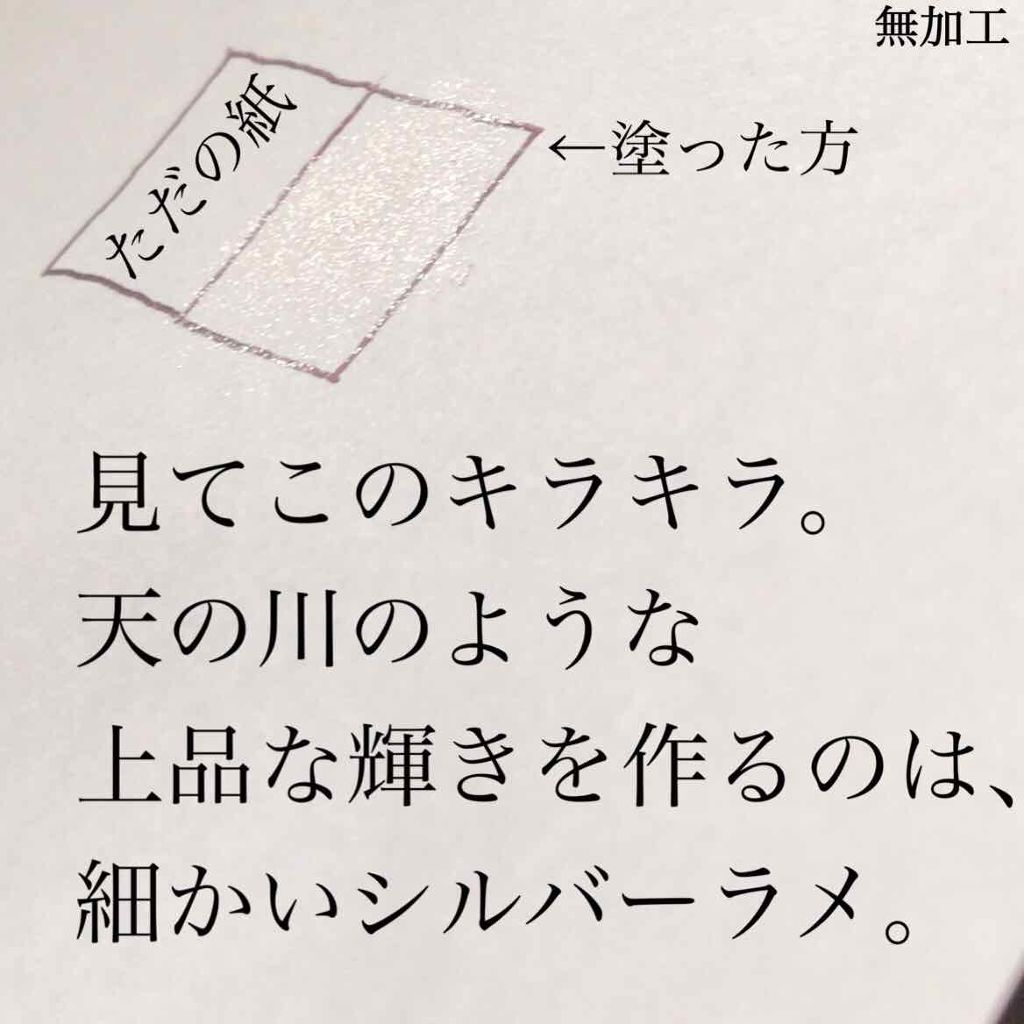 無加工
ただの紙
←塗った方
見てこのキラキラ。
天の川のような
上品な輝きを作るのは、
細かいシルバーラメ。